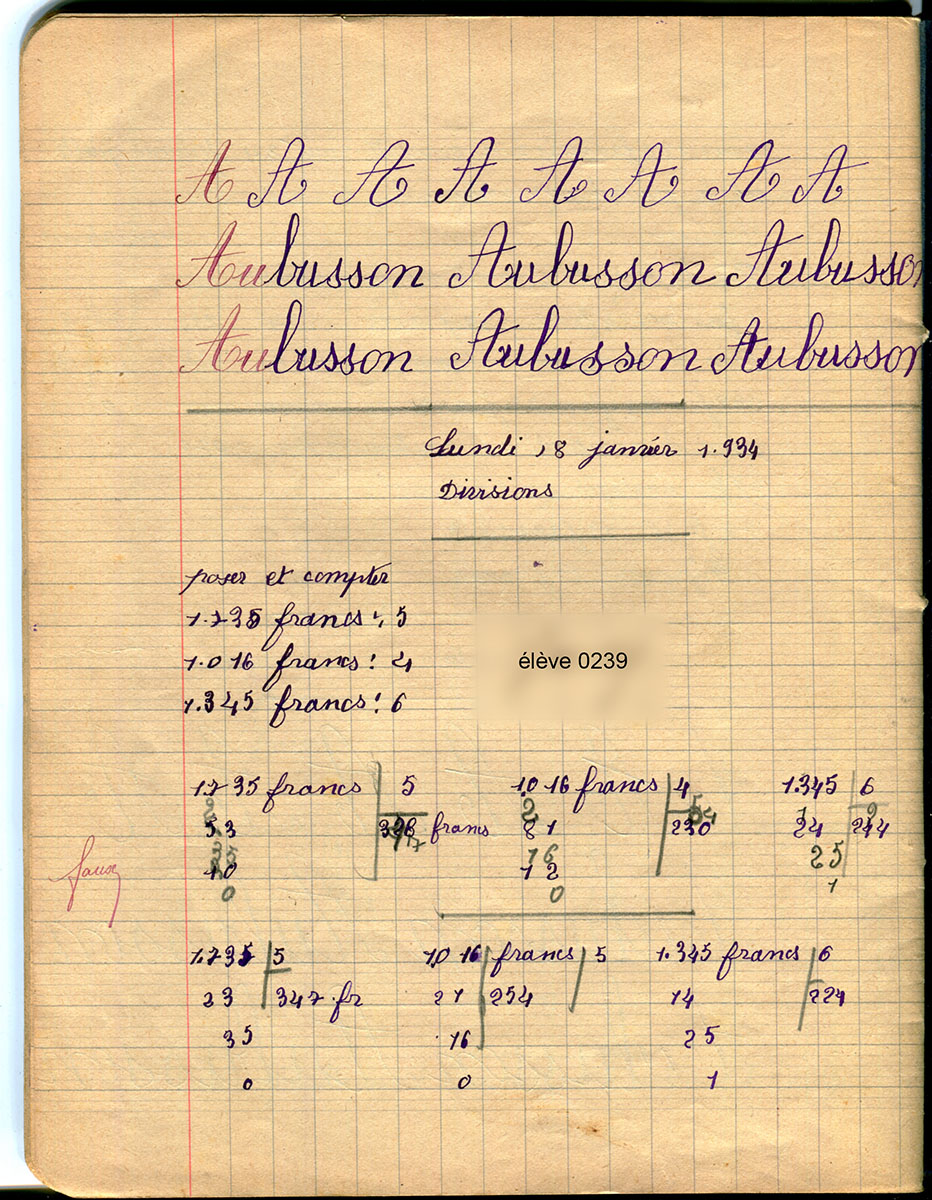 A A A A A A A A
Aubusson Aubusson Aubusson
Aubusson Aubusson Aubusson
Lundi 8 janvier 1.934
Divisions
poser et compter
1.735 francs : 5
1.016 francs : 4
1.345 francs : 6
élève 0239
1.735 francs 5
53 francs
10
0
10 16 francs 4
81 230
16
12
0
1.345 6
24
25
1
faux
1.735 5
23 347 fr
35
0
10 16 francs 5
21 254
16
0
1.345 francs 6
14 224
25
1